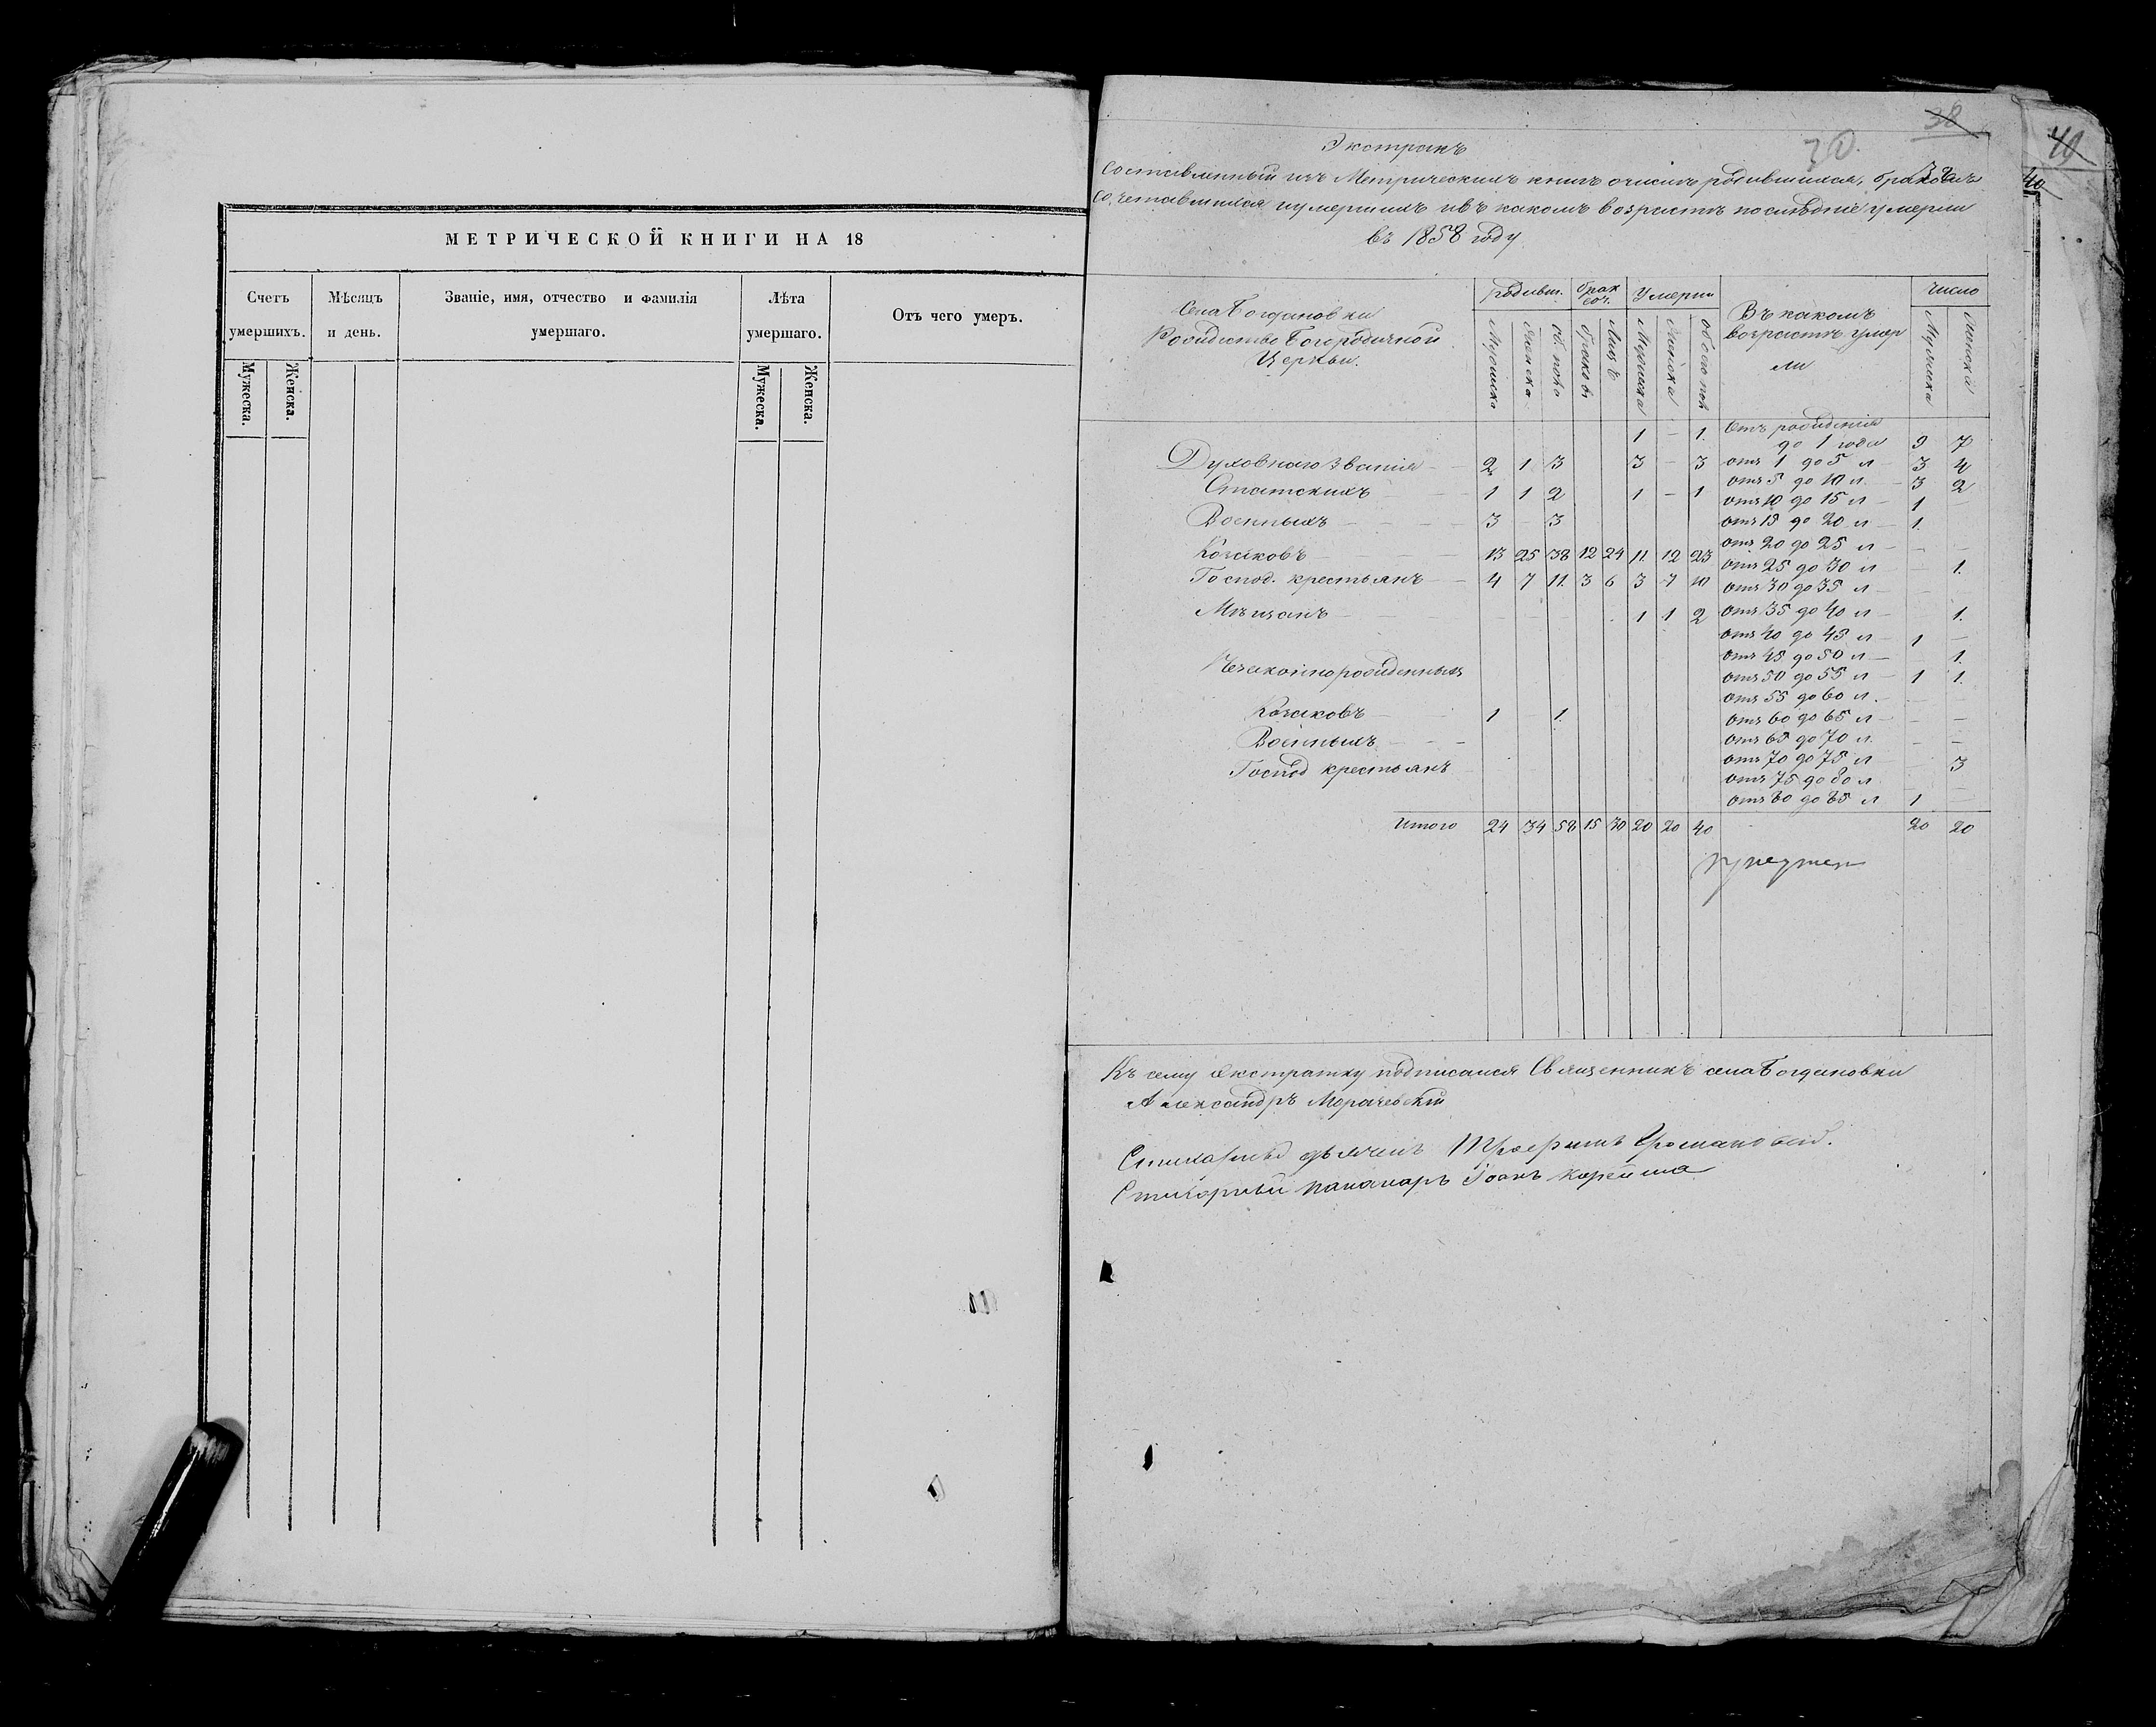 МЕТРИЧЕСКОЙ КНИГИ НА 18
Счетъ умершихъ.
Мѣсяцъ и день.
Званіе, имя, отчество и фамилія умершаго.
Лѣта умершаго.
Отъ чего умеръ.
Мужеска.
Женска.
Мужеска.
Женска.
38
30
40
40
Экстрактъ
Составленный изъ Метрическихъ книгъ о числѣ родившихся, бракомъ
сочетавшихся и умершихъ и въ какомъ возрастѣ послѣдніе умерли
въ 1858 году
Села Богдановки
Рождество Богородичной
Церкви.
Родивш.
Брак соч.
Умерли
Въ какомъ возрастѣ умерли
Число
Мужеска
Женска
Об. пола
Браковъ
Лицъ
Мужеска
Женска
Обоего пол
Мужеска
Женска
1 – 1. Отъ рожденія до 1 года 9 7
Духовнаго званія – 2 1 3 3 – 3 отъ 1 до 5 л 3 4
отъ 5 до 10 л. – 3 2
Статскихъ – – – 1 1 2 1 – 1 отъ 10 до 15 л 1 –
Военныхъ – – – – 3 – 3 отъ 15 до 20 л – 1.
отъ 20 до 25 л – – –
Козаковъ – – – – 13 25 38 12 24 11. 12 23 отъ 25 до 30 л – 1.
Господ. крестьянъ – 4 7 11. 3 6 3 7 10 отъ 30 до 35 л –
Мѣщанъ – – – – – – 1 1 2 отъ 35 до 40 л – 1.
отъ 40 до 45 л – 1 –
отъ 45 до 50 л – 1.
Незаконнорожденныхъ отъ 50 до 55 л – 1 1.
отъ 55 до 60 л.
Козаковъ – – 1 – 1. отъ 60 до 65 л – – –
Военныхъ – – – отъ 65 до 70 л. – –
отъ 70 до 75 л – 3
Господ крестьянъ отъ 75 до 80 л
отъ 80 до 85 л 1 –
Итого 24 34 58 15 30 20 20 40 20 20
Къ сему экстракту подписался Священникъ села Богдановки
Александръ Морачевскій
Стихарный пономарь Іоанъ